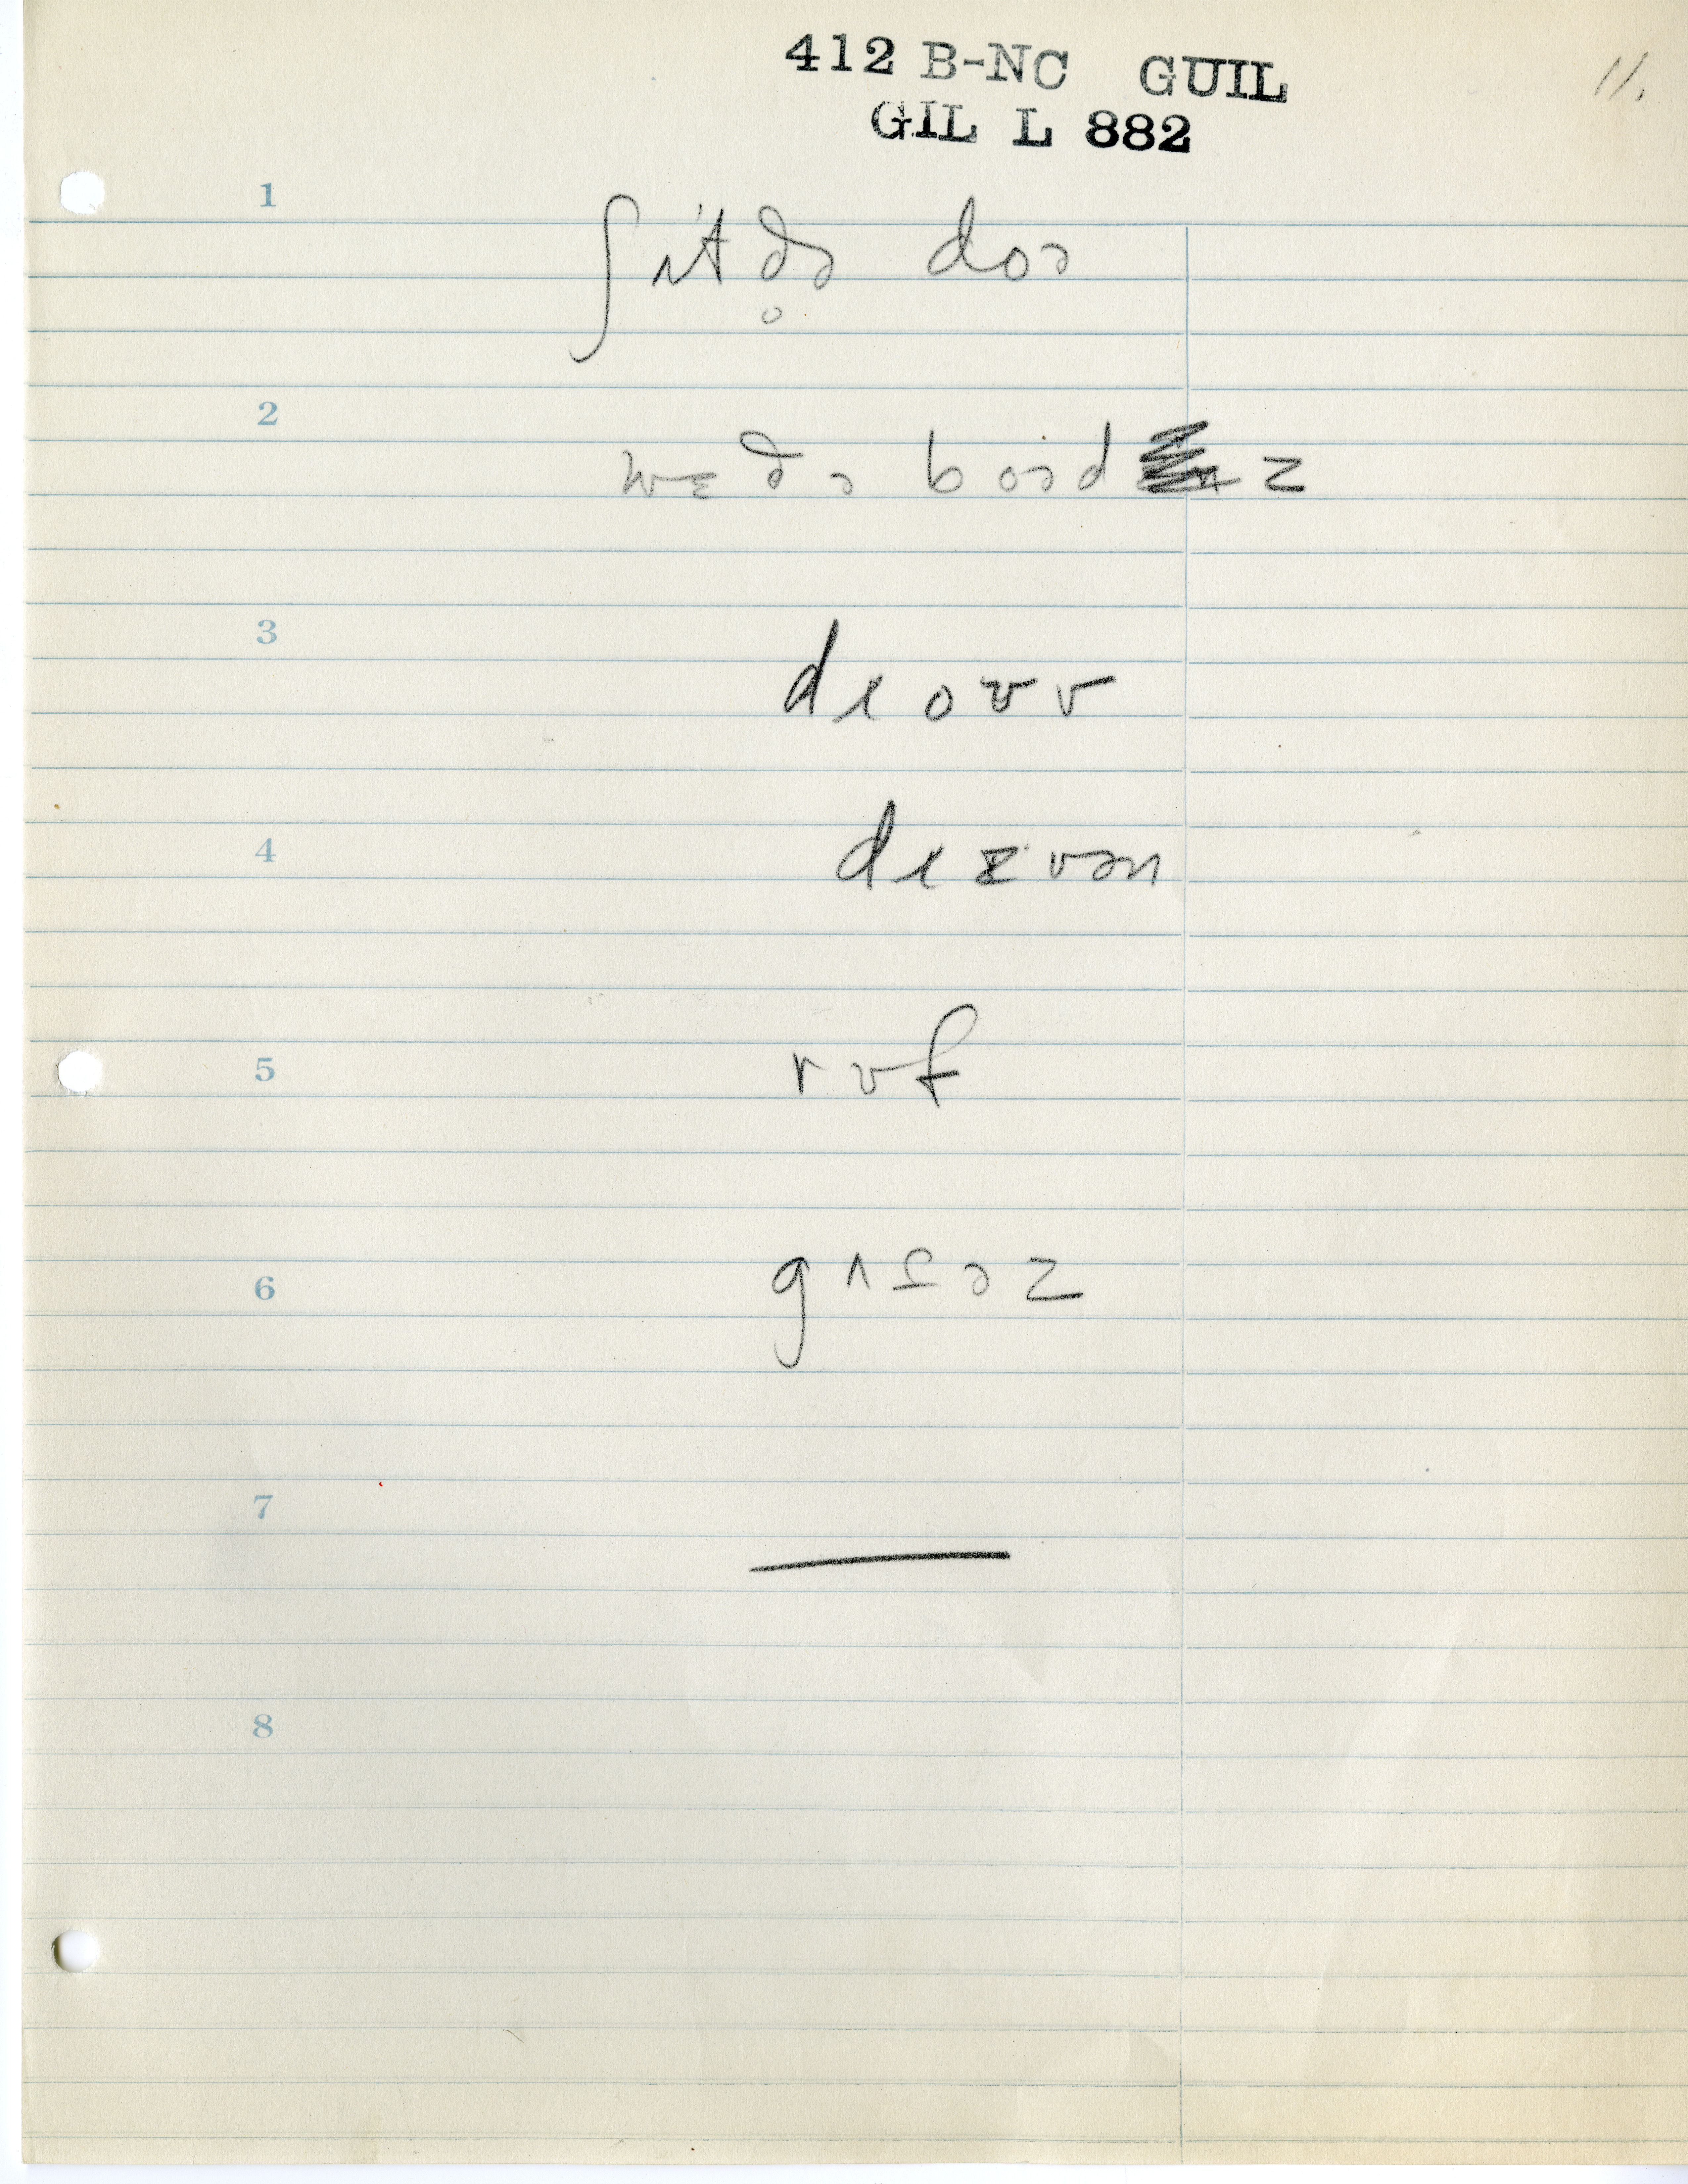 412 B-NC GUIL
GIL L 882
11.
1
ʃɪt ðə̥ doə
2
wɛðə boəd z
3
dɹoʊv
4
dɹɪvən
5
rʊf
6
7
8